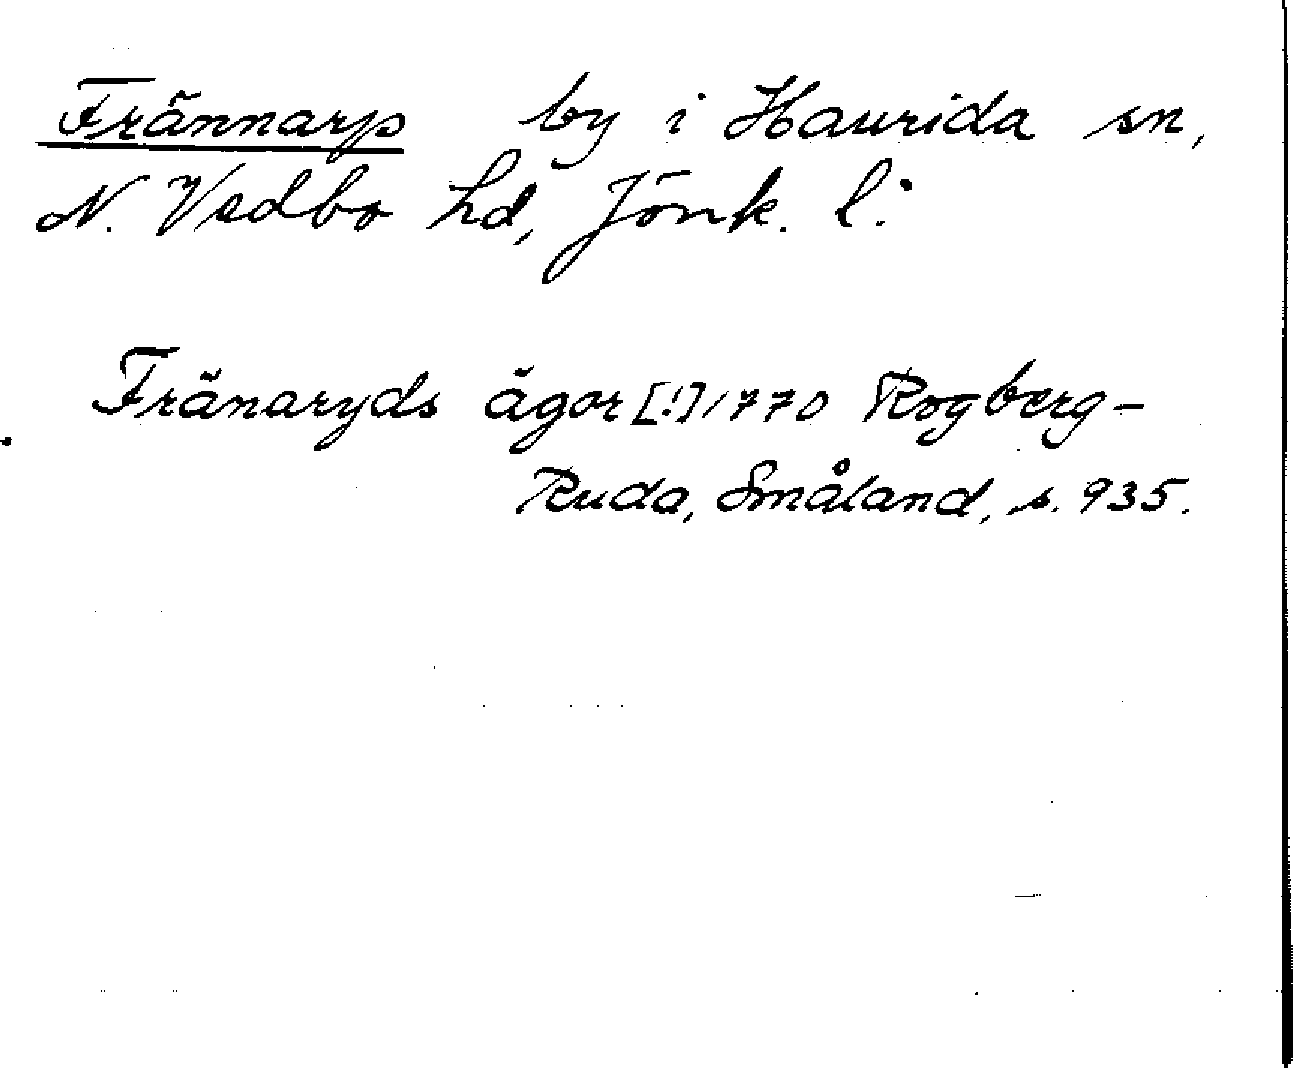 Frännarp by i Haurida sn,
N. Vedbo hd, Jönk. l:
Fränaryds ägor [!] 1770 Rogberg-
Ruda, Småland, s. 935.